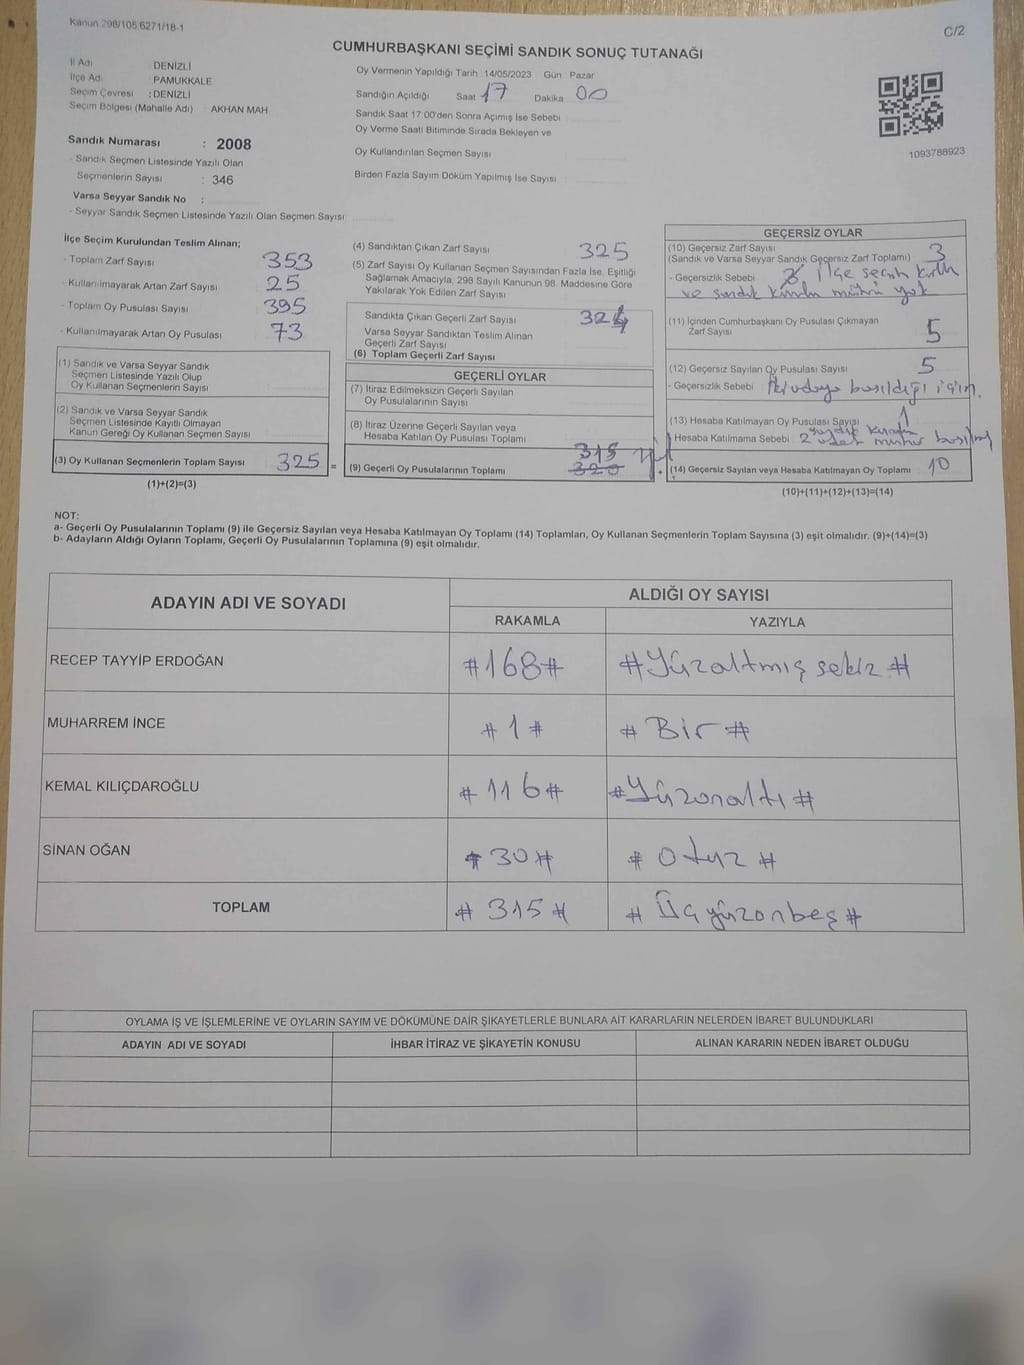 Kanun 298/105,6271/18-1
C/2
CUMHURBAŞKANI SEÇİMİ SANDIK SONUÇ TUTANAĞI
İl Adı : DENİZLİ
İlçe Adı : PAMUKKALE
Seçim Çevresi : DENİZLİ
Seçim Bölgesi (Mahalle Adı) : AKHAN MAH.
Sandık Numarası : 2008
- Sandık Seçmen Listesinde Yazılı Olan
Seçmenlerin Sayısı : 346
Varsa Seyyar Sandık No :
- Seyyar Sandık Seçmen Listesinde Yazılı Olan Seçmen Sayısı:
Oy Vermenin Yapıldığı Tarih :14/05/2023 Gün : Pazar
Sandığın Açıldığı Saat 17 Dakika 00
Sandık Saat 17:00'den Sonra Açımış İse Sebebi :
Oy Verme Saati Bitiminde Sırada Bekleyen ve
Oy Kullandırılan Seçmen Sayısı :
Birden Fazla Sayım Döküm Yapılmış İse Sayısı :
1093788923
İlçe Seçim Kurulundan Teslim Alınan;
- Toplam Zarf Sayısı : 353
- Kullanılmayarak Artan Zarf Sayısı : 25
- Toplam Oy Pusulası Sayısı : 395
- Kullanılmayarak Artan Oy Pusulası : 73
(1) Sandık ve Varsa Seyyar Sandık
Seçmen Listesinde Yazılı Olup
Oy Kullanan Seçmenlerin Sayısı :
(2) Sandık ve Varsa Seyyar Sandık
Seçmen Listesinde Kayıtlı Olmayan
Kanun Gereği Oy Kullanan Seçmen Sayısı :
(3) Oy Kullanan Seçmenlerin Toplam Sayısı : 325 =
(1)+(2)=(3)
(4) Sandıktan Çıkan Zarf Sayısı : 325
(5) Zarf Sayısı Oy Kullanan Seçmen Sayısından Fazla İse, Eşitliği
Sağlamak Amacıyla, 298 Sayılı Kanunun 98. Maddesine Göre
Yakılarak Yok Edilen Zarf Sayısı :
Sandıkta Çıkan Geçerli Zarf Sayısı : 324
Varsa Seyyar Sandıktan Teslim Alınan
Geçerli Zarf Sayısı :
(6) Toplam Geçerli Zarf Sayısı :
GEÇERLİ OYLAR
(7) İtiraz Edilmeksizin Geçerli Sayılan
Oy Pusulalarının Sayısı :
(8) İtiraz Üzerine Geçerli Sayılan veya
Hesaba Katılan Oy Pusulası Toplamı :
315
(9) Geçerli Oy Pusulalarının Toplamı : 320 +
GEÇERSİZ OYLAR
(10) Geçersiz Zarf Sayısı : 3
(Sandık ve Varsa Seyyar Sandık Geçersiz Zarf Toplamı)
- Geçersizlik Sebebi : ilçe seçim kurulu
ve sandık kurulu mührü yok
(11) İçinden Cumhurbaşkanı Oy Pusulası Çıkmayan
Zarf Sayısı : 5
(12) Geçersiz Sayılan Oy Pusulası Sayısı : 5
- Geçersizlik Sebebi : İki adaya basıldığı için.
(13) Hesaba Katılmayan Oy Pusulası Sayısı : 1
Hesaba Katılmama Sebebi : 2 adet mühür
(14) Geçersiz Sayılan veya Hesaba Katılmayan Oy Toplamı : 10
(10)+(11)+(12)+(13)=(14)
NOT:
a- Geçerli Oy Pusulalarının Toplamı (9) ile Geçersiz Sayılan veya Hesaba Katılmayan Oy Toplamı (14) Toplamları, Oy Kullanan Seçmenlerin Toplam Sayısına (3) eşit olmalıdır. (9)+(14)=(3)
b- Adayların Aldığı Oyların Toplamı, Geçerli Oy Pusulalarının Toplamına (9) eşit olmalıdır.
ADAYIN ADI VE SOYADI
ALDIĞI OY SAYISI
RAKAMLA YAZIYLA
RECEP TAYYİP ERDOĞAN #168# #Yüzaltmış sekiz#
MUHARREM İNCE #1# #Bir#
KEMAL KILIÇDAROĞLU #116# #Yüzonaltı#
SİNAN OĞAN #30# #Otuz#
TOPLAM #315# #Üçyüzonbeş#
OYLAMA İŞ VE İŞLEMLERİNE VE OYLARIN SAYIM VE DÖKÜMÜNE DAİR ŞİKAYETLERLE BUNLARA AİT KARARLARIN NELERDEN İBARET BULUNDUKLARI
ADAYIN ADI VE SOYADI İHBAR İTİRAZ VE ŞİKAYETİN KONUSU ALINAN KARARIN NEDEN İBARET OLDUĞU